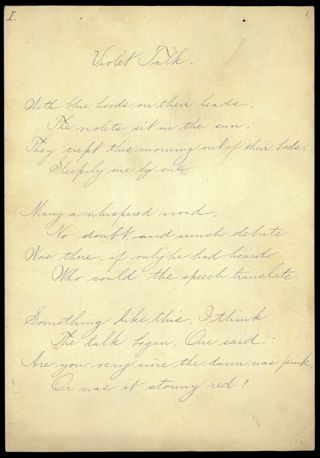 I.
1
Violet Talk.
With blue hoods on their heads,
The violets sit in the sun,
They crept this morning out of their beds,
Sleepily one by one
Many a whispered word,
No doubt, and much debate
Was there, if only he had heard
Who could the speech translate.
Something like this, I think
The talk began, One said:
Are you very sure the dawn was pink,
Or was it stormy red?